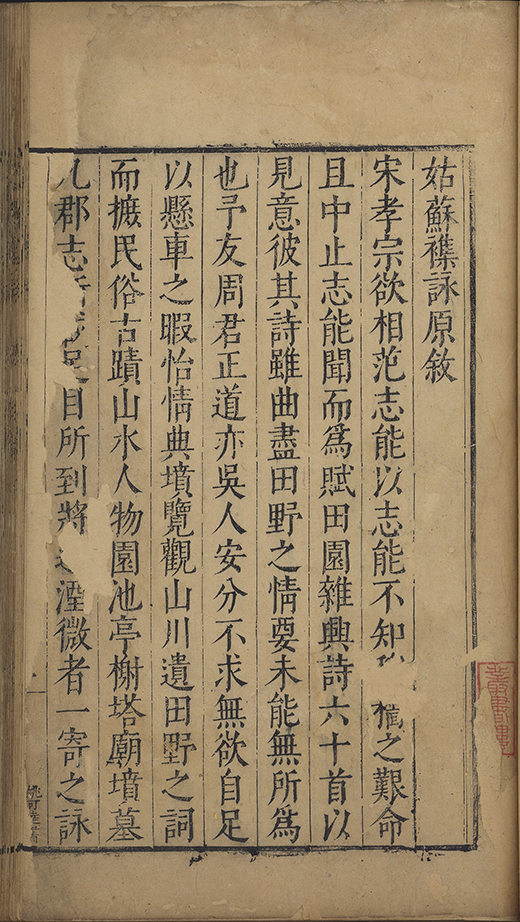 姑蘇襍詠原敘
宋孝宗欲相范志能以志能不知 之艱命
且中止志能聞而爲賦田園雜興詩六十首以
見意彼其詩雖曲盡田野之情要未能無所爲
也予友周君正道亦吳人安分不求無欲自足
以懸車之暇怡情典墳覽觀山川遺田野之詞
而摭民俗古蹟山水人物園池亭榭塔廟墳墓
凡郡志 足目所到將 湮微者一寄之詠